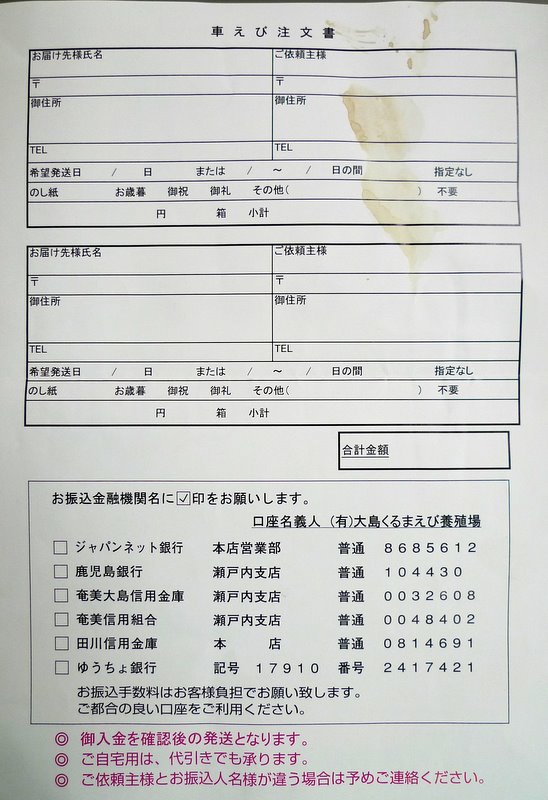 車えび注文書
お届け先様氏名 ご依頼主様
〒 〒
御住所 御住所
TEL TEL
希望発送日 / 日 または / ～ / 日の間 指定なし
のし紙 お歳暮 御祝 御礼 その他( ) 不要
円 箱 小計
お届け先様氏名 ご依頼主様
〒 〒
御住所 御住所
TEL TEL
希望発送日 / 日 または / ～ / 日の間 指定なし
のし紙 お歳暮 御祝 御礼 その他( ) 不要
円 箱 小計
合計金額
お振込金融機関名に☑印をお願いします。
口座名義人 (有)大島くるまえび養殖場
□ ジャパンネット銀行 本店営業部 普通 8685612
□ 鹿児島銀行 瀬戸内支店 普通 104430
□ 奄美大島信用金庫 瀬戸内支店 普通 0032608
□ 奄美信用組合 瀬戸内支店 普通 0048402
□ 田川信用金庫 本店 普通 0814691
□ ゆうちょ銀行 記号 17910 番号 2417421
お振込手数料はお客様負担でお願い致します。
ご都合の良い口座をご利用ください。
◎ 御入金を確認後の発送となります。
◎ ご自宅用は、代引きでも承ります。
◎ ご依頼主様とお振込人名様が違う場合は予めご連絡ください。